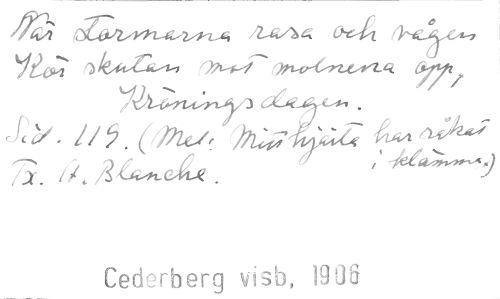 När stormarna rasa och vågen
Kör skutan mot molnena opp,
Kröningsdagen.
Sid. 119. (Mel: Mitt hjärta har råkat
i klämma.)
Tx. A. Blanche.
Cederberg visb, 1906